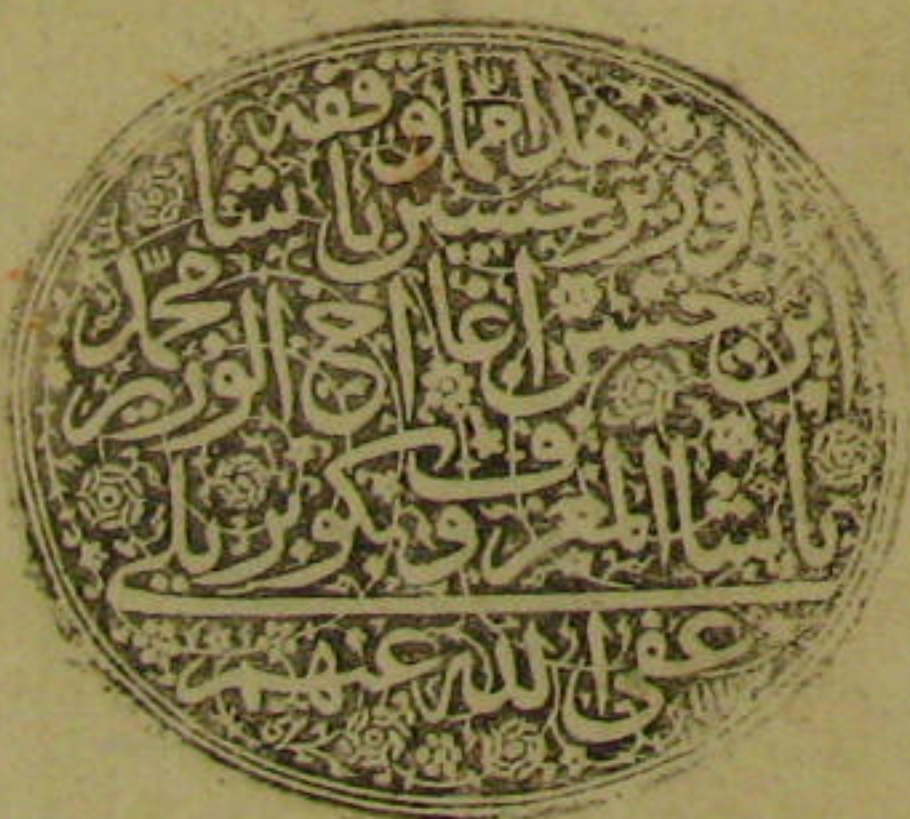 هذا مما وقفه
الوزير حسين باشا
بن حسن اغا اخ الوزير محمد
باشا المعروف بكوبريلي
عفى الله عنهم